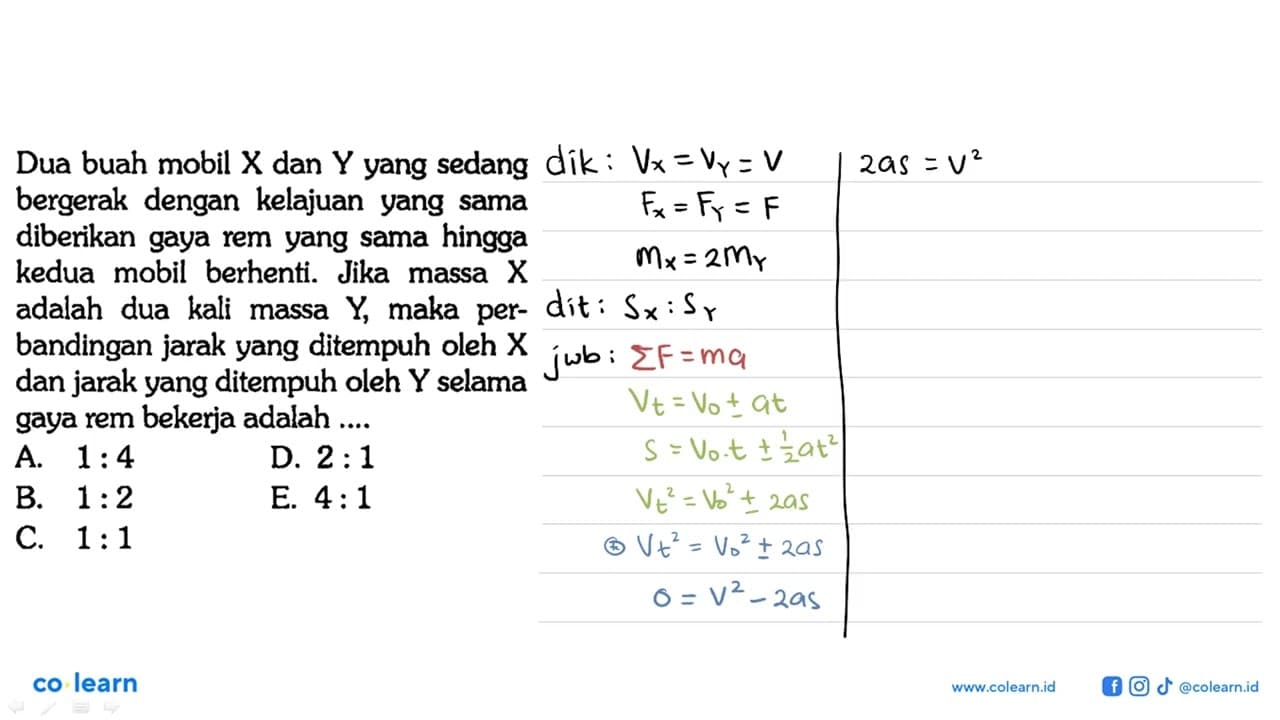 Dua buah mobil X dan Y yang sedang
bergerak dengan kelajuan yang sama
diberikan gaya rem yang sama hingga
kedua mobil berhenti. Jika massa X
adalah dua kali massa Y, maka per-
bandingan jarak yang ditempuh oleh X
dan jarak yang ditempuh oleh Y selama
gaya rem bekerja adalah ....
A. 1 : 4 D. 2 : 1
B. 1 : 2 E. 4 : 1
C. 1 : 1
dik : Vx = VY = V
Fx = FY = F
mx = 2mY
dit : Sx : SY
jwb : ΣF = ma
Vt = Vo ± at
S = Vo.t ± 1/2 at²
Vt² = Vo² ± 2as
⊛ Vt² = Vo² ± 2as
0 = V² - 2as
2as = V²
co learn
www.colearn.id
@colearn.id